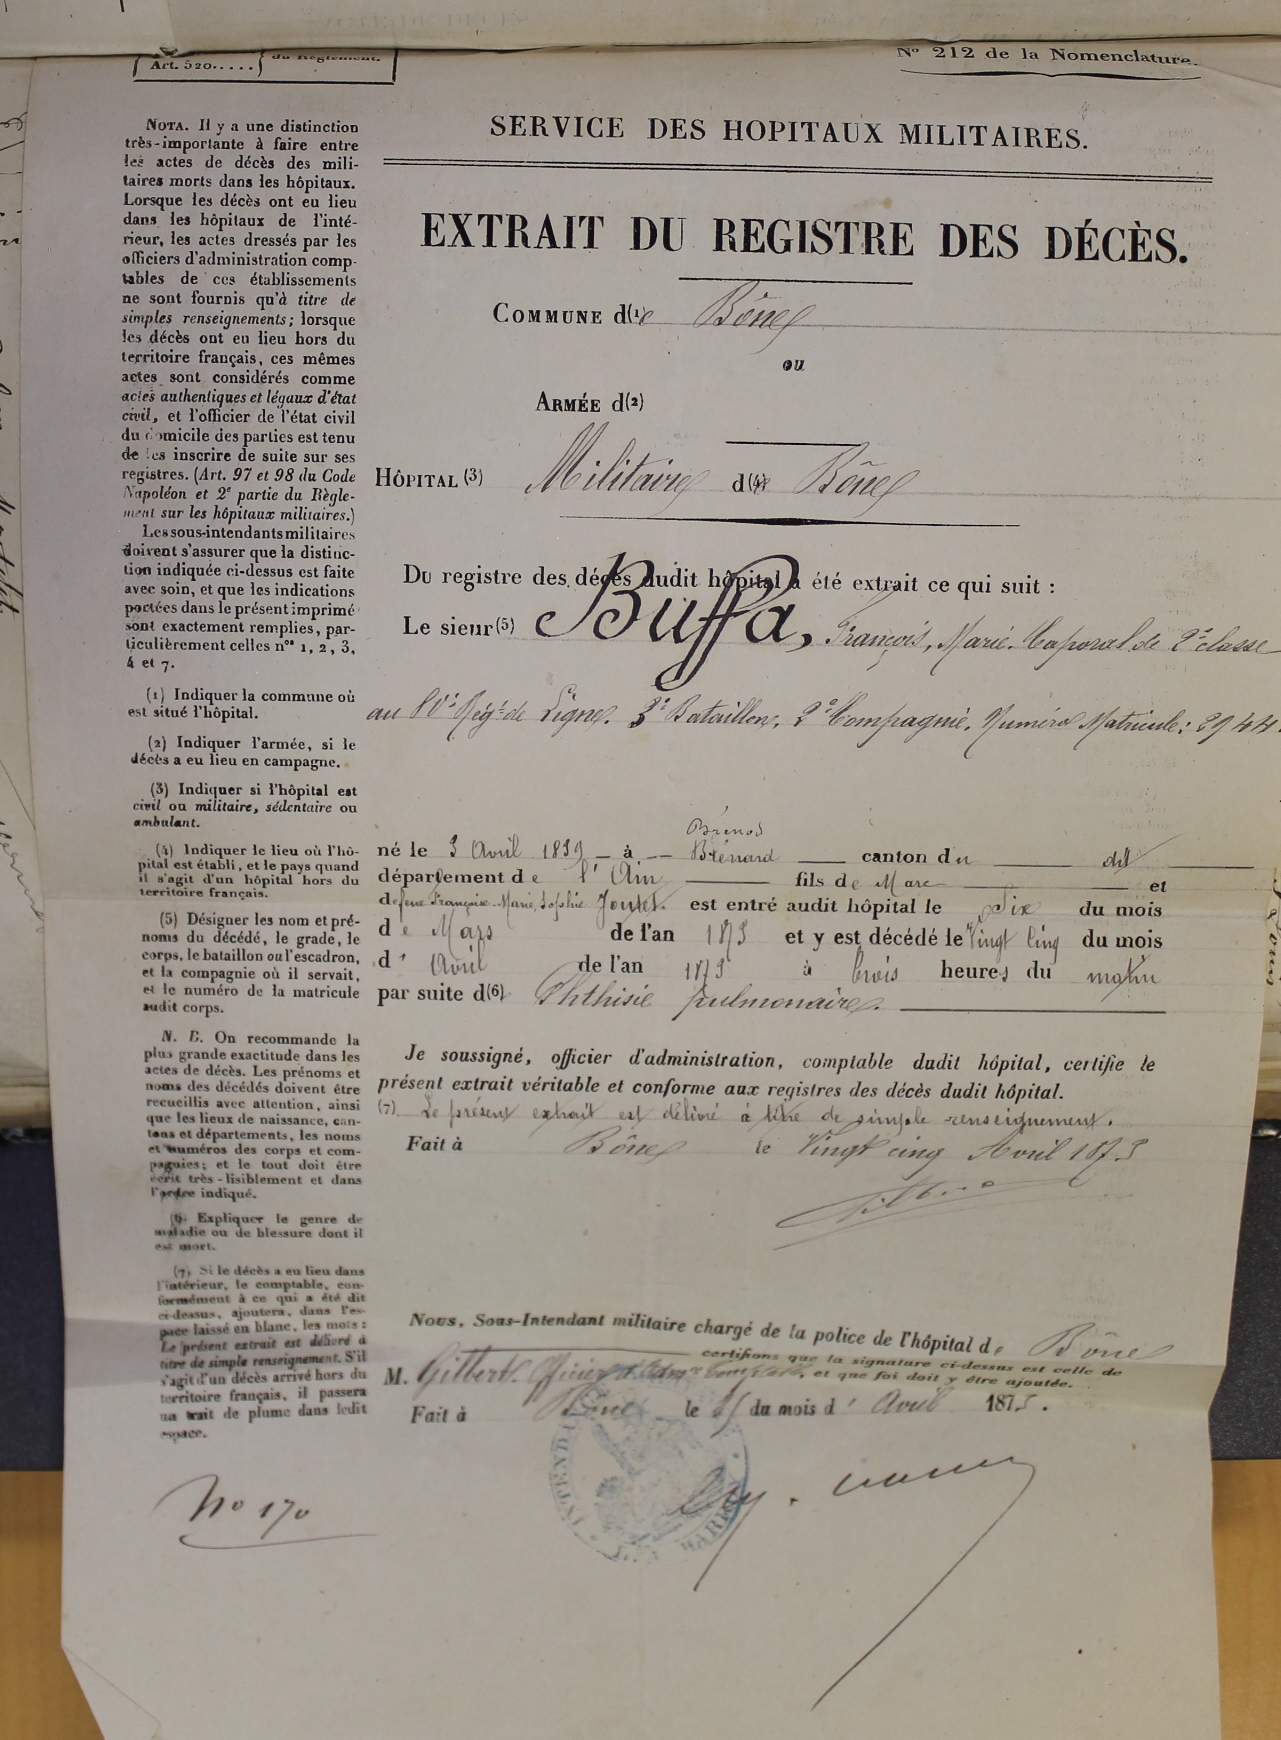 Art. 520..... du Règlement.
N° 212 de la Nomenclature.
NOTA. Il y a une distinction
très-importante à faire entre
les actes de décès des mili-
taires morts dans les hôpitaux.
Lorsque les décès ont eu lieu
dans les hôpitaux de l'inté-
rieur, les actes dressés par les
officiers d'administration comp-
tables de ces établissements
ne sont fournis qu'à titre de
simples renseignements; lorsque
les décès ont eu lieu hors du
territoire français, ces mêmes
actes sont considérés comme
actes authentiques et légaux d'état
civil, et l'officier de l'état civil
du domicile des parties est tenu
de les inscrire de suite sur ses
registres. (Art. 97 et 98 du Code
Napoléon et 2e partie du Règle-
ment sur les hôpitaux militaires.)
Les sous-intendants militaires
doivent s'assurer que la distinc-
tion indiquée ci-dessus est faite
avec soin, et que les indications
portées dans le présent imprimé
sont exactement remplies, par-
ticulièrement celles nos 1, 2, 3,
4 et 7.
(1) Indiquer la commune où
est situé l'hôpital.
(2) Indiquer l'armée, si le
décès a eu lieu en campagne.
(3) Indiquer si l'hôpital est
civil ou militaire, sédentaire ou
ambulant.
(4) Indiquer le lieu où l'hô-
pital est établi, et le pays quand
il s'agit d'un hôpital hors du
territoire français.
(5) Désigner les nom et pré-
noms du décédé, le grade, le
corps, le bataillon ou l'escadron,
et la compagnie où il servait,
et le numéro de la matricule
audit corps.
N. B. On recommande la
plus grande exactitude dans les
actes de décès. Les prénoms et
noms des décédés doivent être
recueillis avec attention, ainsi
que les lieux de naissance, can-
tons et départements, les noms
et numéros des corps et com-
pagnies; et le tout doit être
écrit très-lisiblement et dans
l'ordre indiqué.
(6) Expliquer le genre de
maladie ou de blessure dont il
est mort.
(7) Si le décès a eu lieu dans
l'intérieur, le comptable, con-
formément à ce qui a été dit
ci-dessus, ajoutera, dans l'es-
pace laissé en blanc, les mots:
Le présent extrait est délivré à
titre de simple renseignement. S'il
s'agit d'un décès arrivé hors du
territoire français, il passera
un trait de plume dans ledit
espace.
No 170
SERVICE DES HOPITAUX MILITAIRES.
EXTRAIT DU REGISTRE DES DÉCÈS.
COMMUNE d(1)e Bône
ou
ARMÉE d(2)
HÔPITAL (3) Militaire d(4)e Bône
Du registre des décès dudit hôpital a été extrait ce qui suit :
Le sieur (5) Buffa, François, Marie. Caporal de 2e classe
au Régt de Ligne. 3e Bataillon. 2e Compagnie. Numéro Matricule: 2944.
Brénod
né le 3 Avril 1839 à Brénard canton du dit
département de l'Ain fils de Marc et
de feue Françoise Marie Sophie est entré audit hôpital le Six du mois
de Mars de l'an 1873 et y est décédé le Vingt Cinq du mois
d' Avril de l'an 1873 à trois heures du matin
par suite d(6) Phthisie pulmonaire.
Je soussigné, officier d'administration, comptable dudit hôpital, certifie le
présent extrait véritable et conforme aux registres des décès dudit hôpital.
(7) Le présent extrait est délivré à titre de simple renseignement.
Fait à Bône le Vingt cinq Avril 1873
Nous, Sous-Intendant militaire chargé de la police de l'hôpital de Bône
certifions que la signature ci-dessus est celle de
M. Gilbert Officier d'Adm. Comptable, et que foi doit y être ajoutée.
Fait à Bône le 25 du mois d' Avril 1873.
INTENDANCE